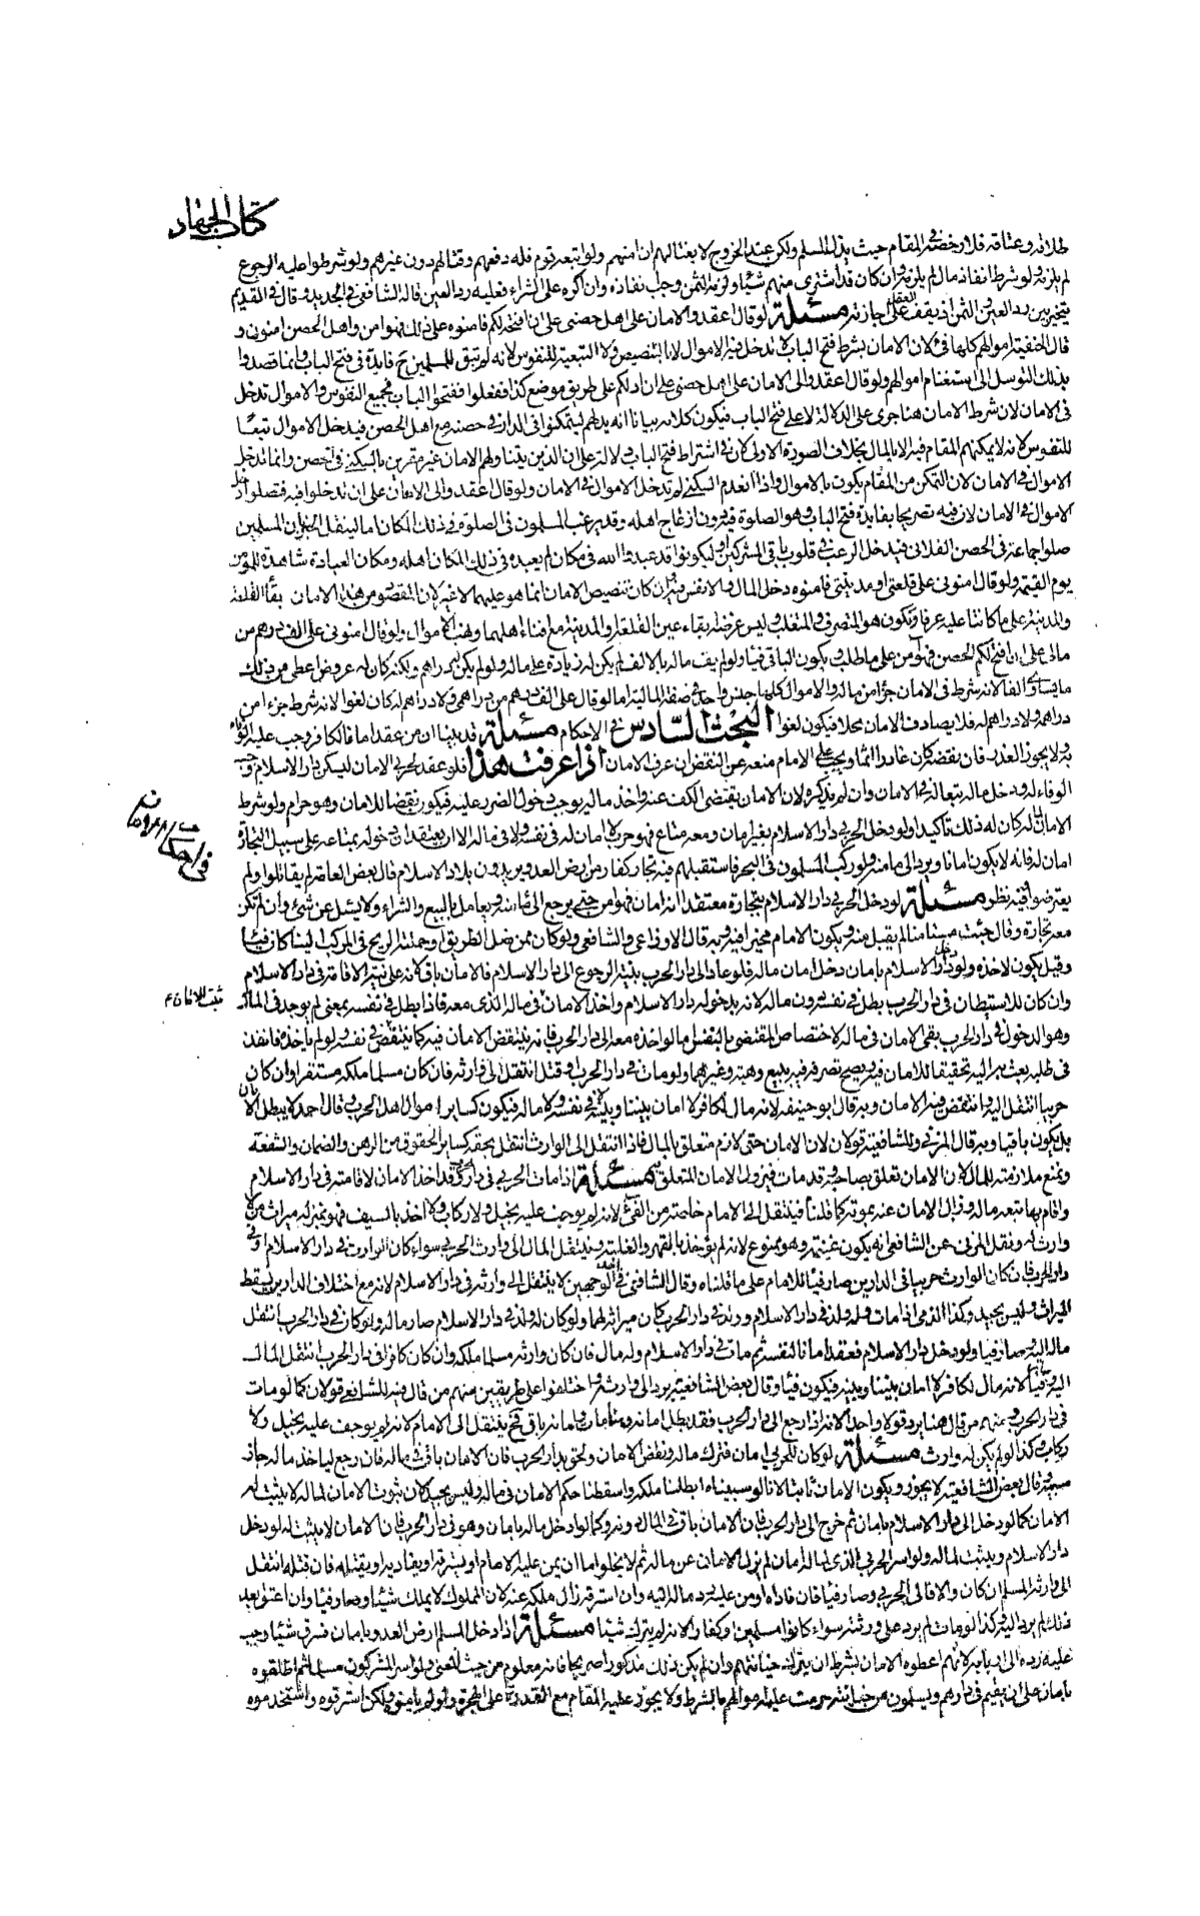 كتاب الجهاد
طلاقه وعتاقه فلا رخصة في المقام حيث بذل المسلم ولكن عند الخروج لا يغتالهم ان امنهم ولو اتبعه قوم فله دفعهم وقتالهم دون غيرهم ولو شرطوا عليه الرجوع
لم يلزمه ولو شرط انفاذ مال لم يلزمه وان كان قد اشترى منهم شيئا ولزمه الثمن وجب نفاذه وان اكره على الشراء فعليه رد العين قاله الشافعي في الجديد وقال في القديم
يتخير بين رد العين والثمن اذ يقف العقد على اجازته مسئلة لو قال اعقدوا الامان على اهل حصني على ان افتحه لكم فامنوه على ذلك فهو امن واهل الحصن امنون و
قال الحنفية اموالهم كلها فيء لان الامان بشرط فتح الباب لا تدخل فيه الاموال لا بالتنصيص ولا التبعية للنفوس لانه لم تبق للمسلمين ح فايدة في فتح الباب وانما قصدوا
بذلك التوسل الى استغنام اموالهم ولو قال اعقدوا لي الامان على اهل حصني على ان ادلكم على طريق موضع كذا ففعلوا ففتحوا الباب فجميع النفوس والاموال تدخل
في الامان لان شرط الامان هنا جرى على الدلالة لا على فتح الباب فيكون كلامه بيانا انه يدلهم ليتمكنوا في القرار في حصنه مع اهل الحصن فيدخل الاموال تبعا
للنفوس لانه لا يمكنهم المقام فيه الا بالمال بخلاف الصورة الاولى لان في اشتراط فتح الباب دلالة على ان الذين يتناولهم الامان غير مقرين بالسكنى في الحصن وانما تدخل
الاموال في الامان لان التمكن من المقام يكون بالاموال واذا انعدم السكنى لم تدخل الاموال في الامان ولو قال اعقدوا لي الامان على ان تدخلوا فيه فتصلوا دخل
الاموال في الامان لان فيه تصريحا بفايدة فتح الباب وهو الصلوة فيه دون ازعاج اهله وقد يرغب المسلمون في الصلوة في ذلك المكان اما لينقل الخبر ان المسلمين
صلوا جماعة في الحصن الفلاني فيدخل الرعب في قلوب باقي المشركين او ليكونوا قد عبدوا الله في مكان لم يعبده في ذلك المكان اهله ومكان العبادة شاهد للمؤمن
يوم القيمة ولو قال امنوني على قلعتي او مدينتي فامنوه دخل المال والانفس فيه وان كان تنصيص الامان انما هو عليهما لا غير لان المقصود من هذا الامان بقاء القلعة
والمدينة على ما كانتا عليه عرفا وتكون هو المتصرف والمتغلب وليس غرضه بقاء عين القلعة والمدينة مع افناء اهلهما ونهب الاموال ولو قال امنوني على الف درهم من
مالي على ان افتح لكم الحصن فهو امن على ما طلب ويكون الباقي فيئا ولو لم يف ماله بالالف لم يكن له زيادة على ماله ولو لم يكن له دراهم ولكنه كان له عروض اعطي من ذلك
ما يساوي الفا لانه شرط في الامان جزءا من ماله والاموال كلها جنس واحد في صفة المالية اما لو قال على الف درهم من دراهمي ولا دراهم له كان لغوا لانه شرط جزءا من
دراهمه ولا دراهم له فلا يصادف الامان محلا فيكون لغوا البحث السادس في الاحكام مسئلة قد بينا ان من عقد امانا لكافر وجب عليه الوفاء
به ولا يجوز الغدر فان نقضه كان غادرا اثما ويجب على الامام منعه عن النقض ان عرف الامان اذا عرفت هذا فلو عقد لحربي الامان ليسكن دار الاسلام وجب
الوفاء له ودخل ماله تبعا له في الامان وان لم يذكره لان الامان يقتضي الكف عنه واخذ ماله يوجب دخول الضرر عليه فيكون نقضا للامان وهو حرام ولو شرط
الامان لماله كان له ذلك تاكيدا ولو دخل الحربي دار الاسلام بغير امان ومعه متاع فهو حرب لا امان له في نفسه ولا في ماله الا ان يعتقد ان دخوله بمتاعه على سبيل التجارة
امان له فانه لا يكون امانا ويرد الى مامنه ولو ركب المسلمون في البحر فاستقبلهم فيه تجار كفار من ارض العدو يريدون بلاد الاسلام قال بعض العامة لم يقاتلوا ولم
يعترضوا فيه نظر مسئلة لو دخل الحربي دار الاسلام بتجارة معتقدا انه امان فهو امن حتى يرجع الى مأمنه ويعامل بالبيع والشراء ولا يسئل عن شيء وان لم تكن
معه تجارة وقال جئت مستامنا لم يقبل منه ويكون الامام مخيرا فيه وبه قال الاوزاعي والشافعي ولو كان ممن ضل الطريق او حملته الريح في المركب الينا كان فيئا
وقيل يكون لاخذه ولو دخل دار الاسلام بامان دخل امان ماله فلو عاد الى دار الحرب بنية الرجوع الى دار الاسلام فالامان باق لانه على نية الاقامة في دار الاسلام
وان كان للاستيطان في دار الحرب بطل في نفسه دون ماله لانه بدخوله دار الاسلام واخذ الامان في ماله الذي معه فاذا بطل في نفسه بمعنى لم يوجد في المال
وهو الدخول في دار الحرب بقي الامان في ماله لاختصاص المقتضي بالنفس اما لو اخذه معه الى دار الحرب فانه ينتقض الامان فيه كما ينتقض في نفسه ولو لم ياخذه فانفذ
في طلبه بعث به اليه تحقيقا للامان فيه ويصح تصرفه فيه ببيع وهبة وغيرهما ولو مات في دار الحرب او قتل انتقل الى وارثه فان كان مسلما ملكه مستقرا وان كان
حربيا انتقل اليه وانتقض فيه الامان وبه قال ابو حنيفة لانه مال لكافر لا امان بيننا وبينه في نفسه ولا ماله فيكون كساير اموال اهل الحرب وقال احمد لا يبطل الامان
بل يكون باقيا وبه قال المزني وللشافعية قولان لان الامان حق لازم متعلق بالمال فاذا انتقل الى الوارث انتقل بحقه كساير الحقوق من الرهن والضمان والشفعة
ونمنع ملازمته للمال لان الامان تعلق بصاحبه وقد مات فيزول الامان المتعلق به مسئلة اذا مات الحربي في دار وقد اخذ الامان لاقامته في دار الاسلام
واقام بها تبعه ماله وزال الامان عنه بموته كما قلنا فينتقل الى الامام خاصة من الفيء لانه لم يوجف عليه بخيل ولا ركاب ولا اخذ بالسيف فهو بمنزلة ميراث من لا
وارث له ونقل المزني عن الشافعي انه يكون غنيمة وهو ممنوع لانه لم يؤخذ بالقهر والغلبة وينتقل المال الى وارث الحربي سواء كان الوارث في دار الاسلام او في
دار الحرب فان كان الوارث حربيا في الدارين صار فيئا للامام على ما قلناه وقال الشافعي في احد الوجهين لا ينتقل الى وارثه في دار الاسلام لانه مع اختلاف الدارين يسقط
الميراث وليس بجيد وكذا الذمي اذا مات وله ولد في دار الاسلام وولد في دار الحرب كان ميراثه لهما ولو كان له ولد في دار الاسلام صار ماله له ولو كان في دار الحرب انتقل
ماله اليه وصار فيئا ولو دخل دار الاسلام فعقد امانا لنفسه ثم مات في دار الاسلام وله مال فان كان وارثه مسلما ملكه وان كان كافرا في دار الحرب انتقل المال
اليه وصار فيئا لانه مال لكافر لا امان بيننا وبينه فيكون فيئا وقال بعض الشافعية يرد الى وارثه واختلفوا على طريقين منهم من قال فيه للشافعي قولان كما لو مات
في دار الحرب ومنهم من قال هنا يرد قولا واحدا لانه اذا رجع الى دار الحرب فقد بطل امانه وهنا مات وامانه باق ح ينتقل الى الامام لانه لم يوجف عليه بخيل ولا
ركاب وكذا لو لم يكن له وارث مسئلة لو كان للحربي امان فترك ماله ونقض الامان ولحق بدار الحرب فان الامان باق في ماله فان رجع لياخذ ماله جاز
سبيه وقال بعض الشافعية لا يجوز ويكون الامان ثابتا لانا لو سبيناه ابطلنا ملكه واسقطنا حكم الامان في ماله وليس بجيد لان ثبوت الامان لماله لا يثبت له
الامان كما لو دخل الى دار الاسلام بامان ثم خرج الى دار الحرب فان الامان باق في المال دونه وكما لو ادخل ماله بامان وهو في دار الحرب فان الامان لا يثبت له لو دخل
دار الاسلام ويثبت لماله ولو اسر الحربي الذي لماله امان لم يزل الامان عن ماله ثم لا يخلو اما ان يمن عليه الامام او يسترقه او يفاديه او يقتله فان قتله انتقل
الى وارثه المسلم ان كان والا فالى الحربي وصار فيئا فان فاداه او من عليه رد ماله اليه وان استرقه زال ملكه عنه لان المملوك لا يملك شيئا وصار فيئا وان اعتق بعد
ذلك لم يرد اليه وكذا لو مات لم يرد على ورثته سواء كانوا مسلمين او كفارا لانه لم يترك شيئا مسئلة اذا دخل المسلم ارض العدو بامان فسرق شيئا وجب
عليه رده الى اربابه لانهم اعطوه الامان بشرط ان يترك خيانتهم وان لم يكن ذلك مذكورا صريحا فانه معلوم من حيث المعنى ولو اسر المشركون مسلما ثم اطلقوه
بامان على ان يقيم في دارهم ويسلمون من خيانته حرمت عليه اموالهم بالشرط ولا يجوز عليه المقام مع القدرة على الهجرة ولو لم يامنوه ولكن استرقوه واستخدموه
في احكام الامان
ثبت الامان